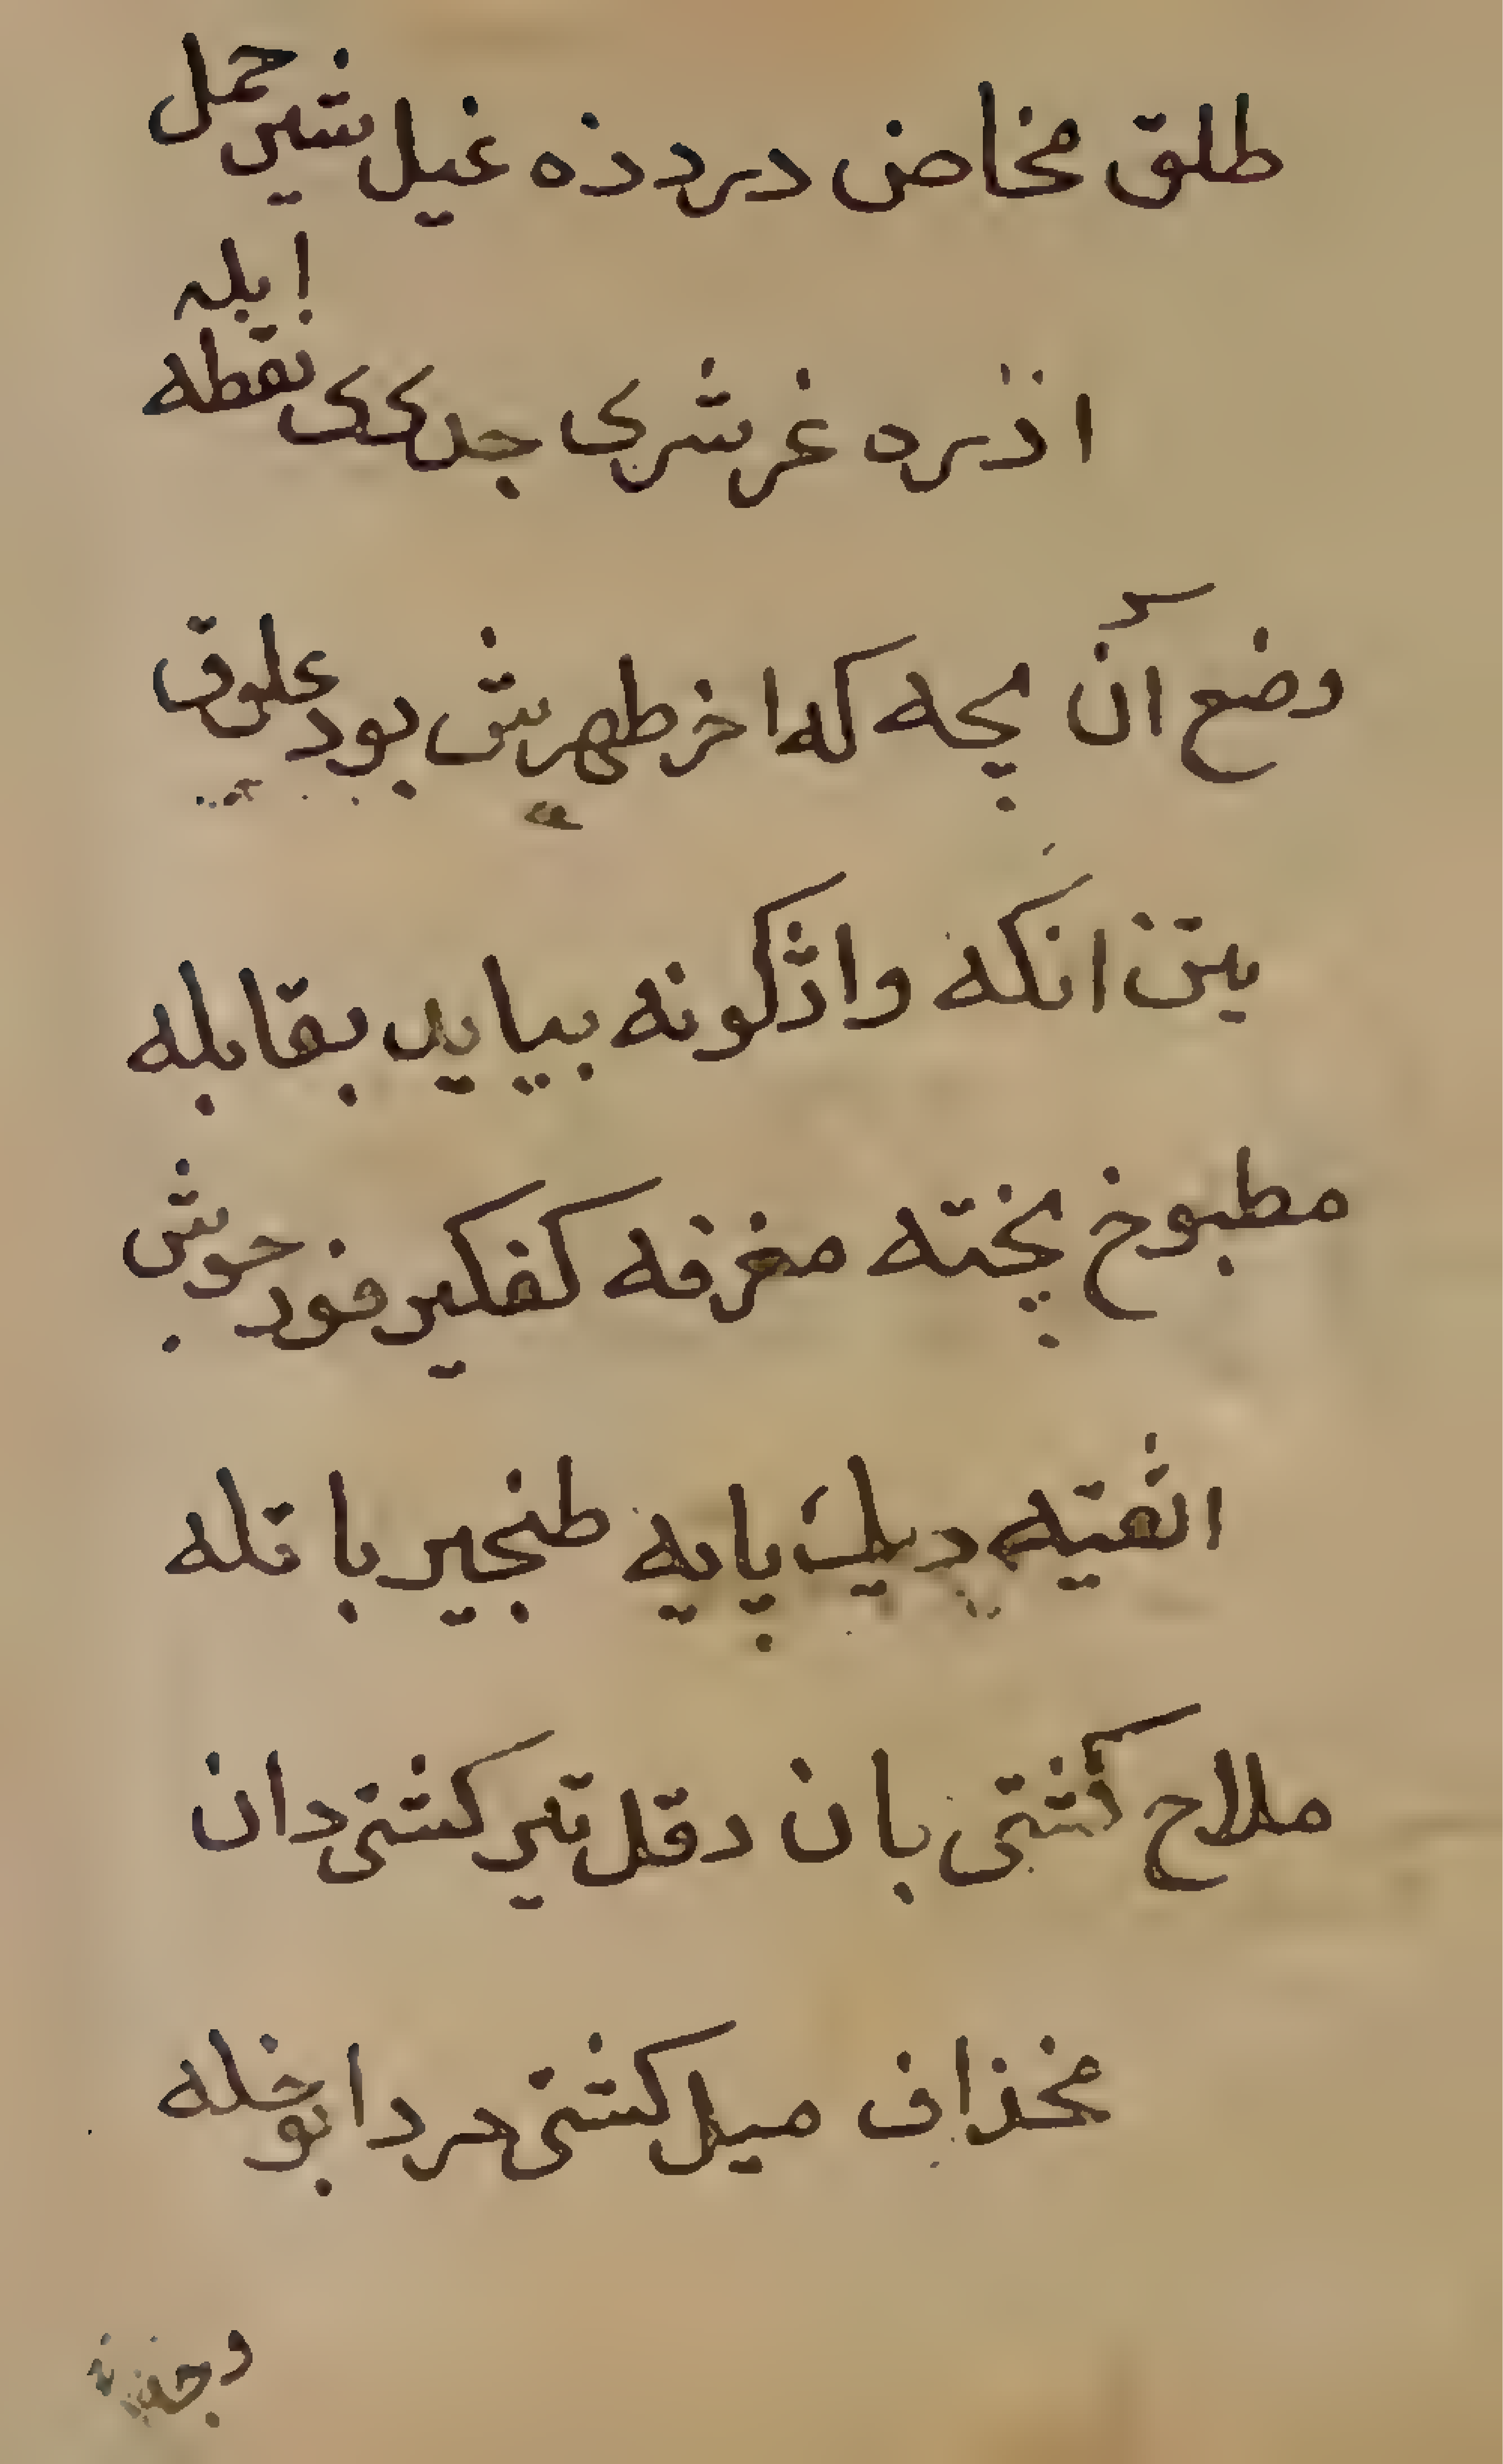 طلق مخاض درد ذه غیل شیر حمل
ابله
اذره غرشرک جدکک نقطه
وضع آن بچه که اخر طهرش بود علوق
یتن انکه واژکونه بیاید بقابله
مطبوخ پخته مغرفه کفکیر فور جوش
اثفیّه دیک پایه طنجیر باتله
ملاح کشتی بان دقل تیر کشتی دان
مخذاف میل کشتی مردا بوخله